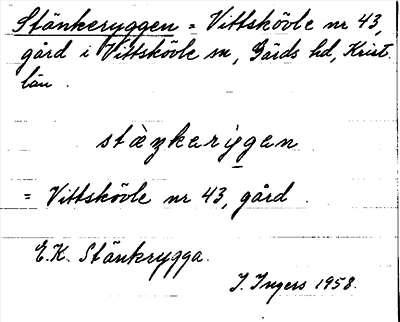 Stänkeryggen = Vittskövle nr 43,
gård i Vittskövle sn, Gärds hd, Krist.
län.
stàŋkerỳgen
= Vittskövle nr 43, gård.
E.K. Stänkrygga.
I. Ingers 1958.